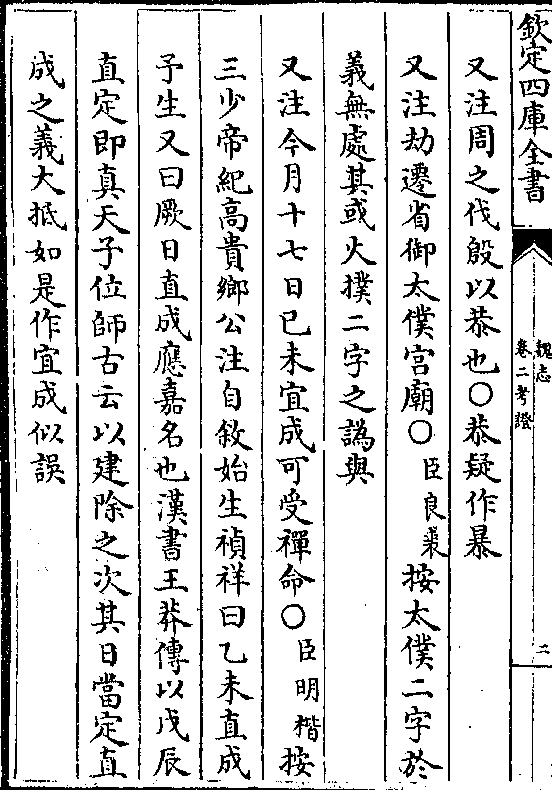 欽定四庫全書
魏志
卷二考證
二
又注周之伐殷以恭也○恭疑作暴
又注劫遷省御太僕宫廟○臣良裘按太僕二字於
義無處其或火撲二字之譌與
又注今月十七日已未宜成可受禪命○臣明楷按
三少帝紀高貴鄉公注自敘始生禎祥曰乙未直成
子生又曰厥日直成應嘉名也漢書王莽傳以戊辰
直定即真天子位師古云以建除之次其日當定直
成之義大抵如是作宜成似誤